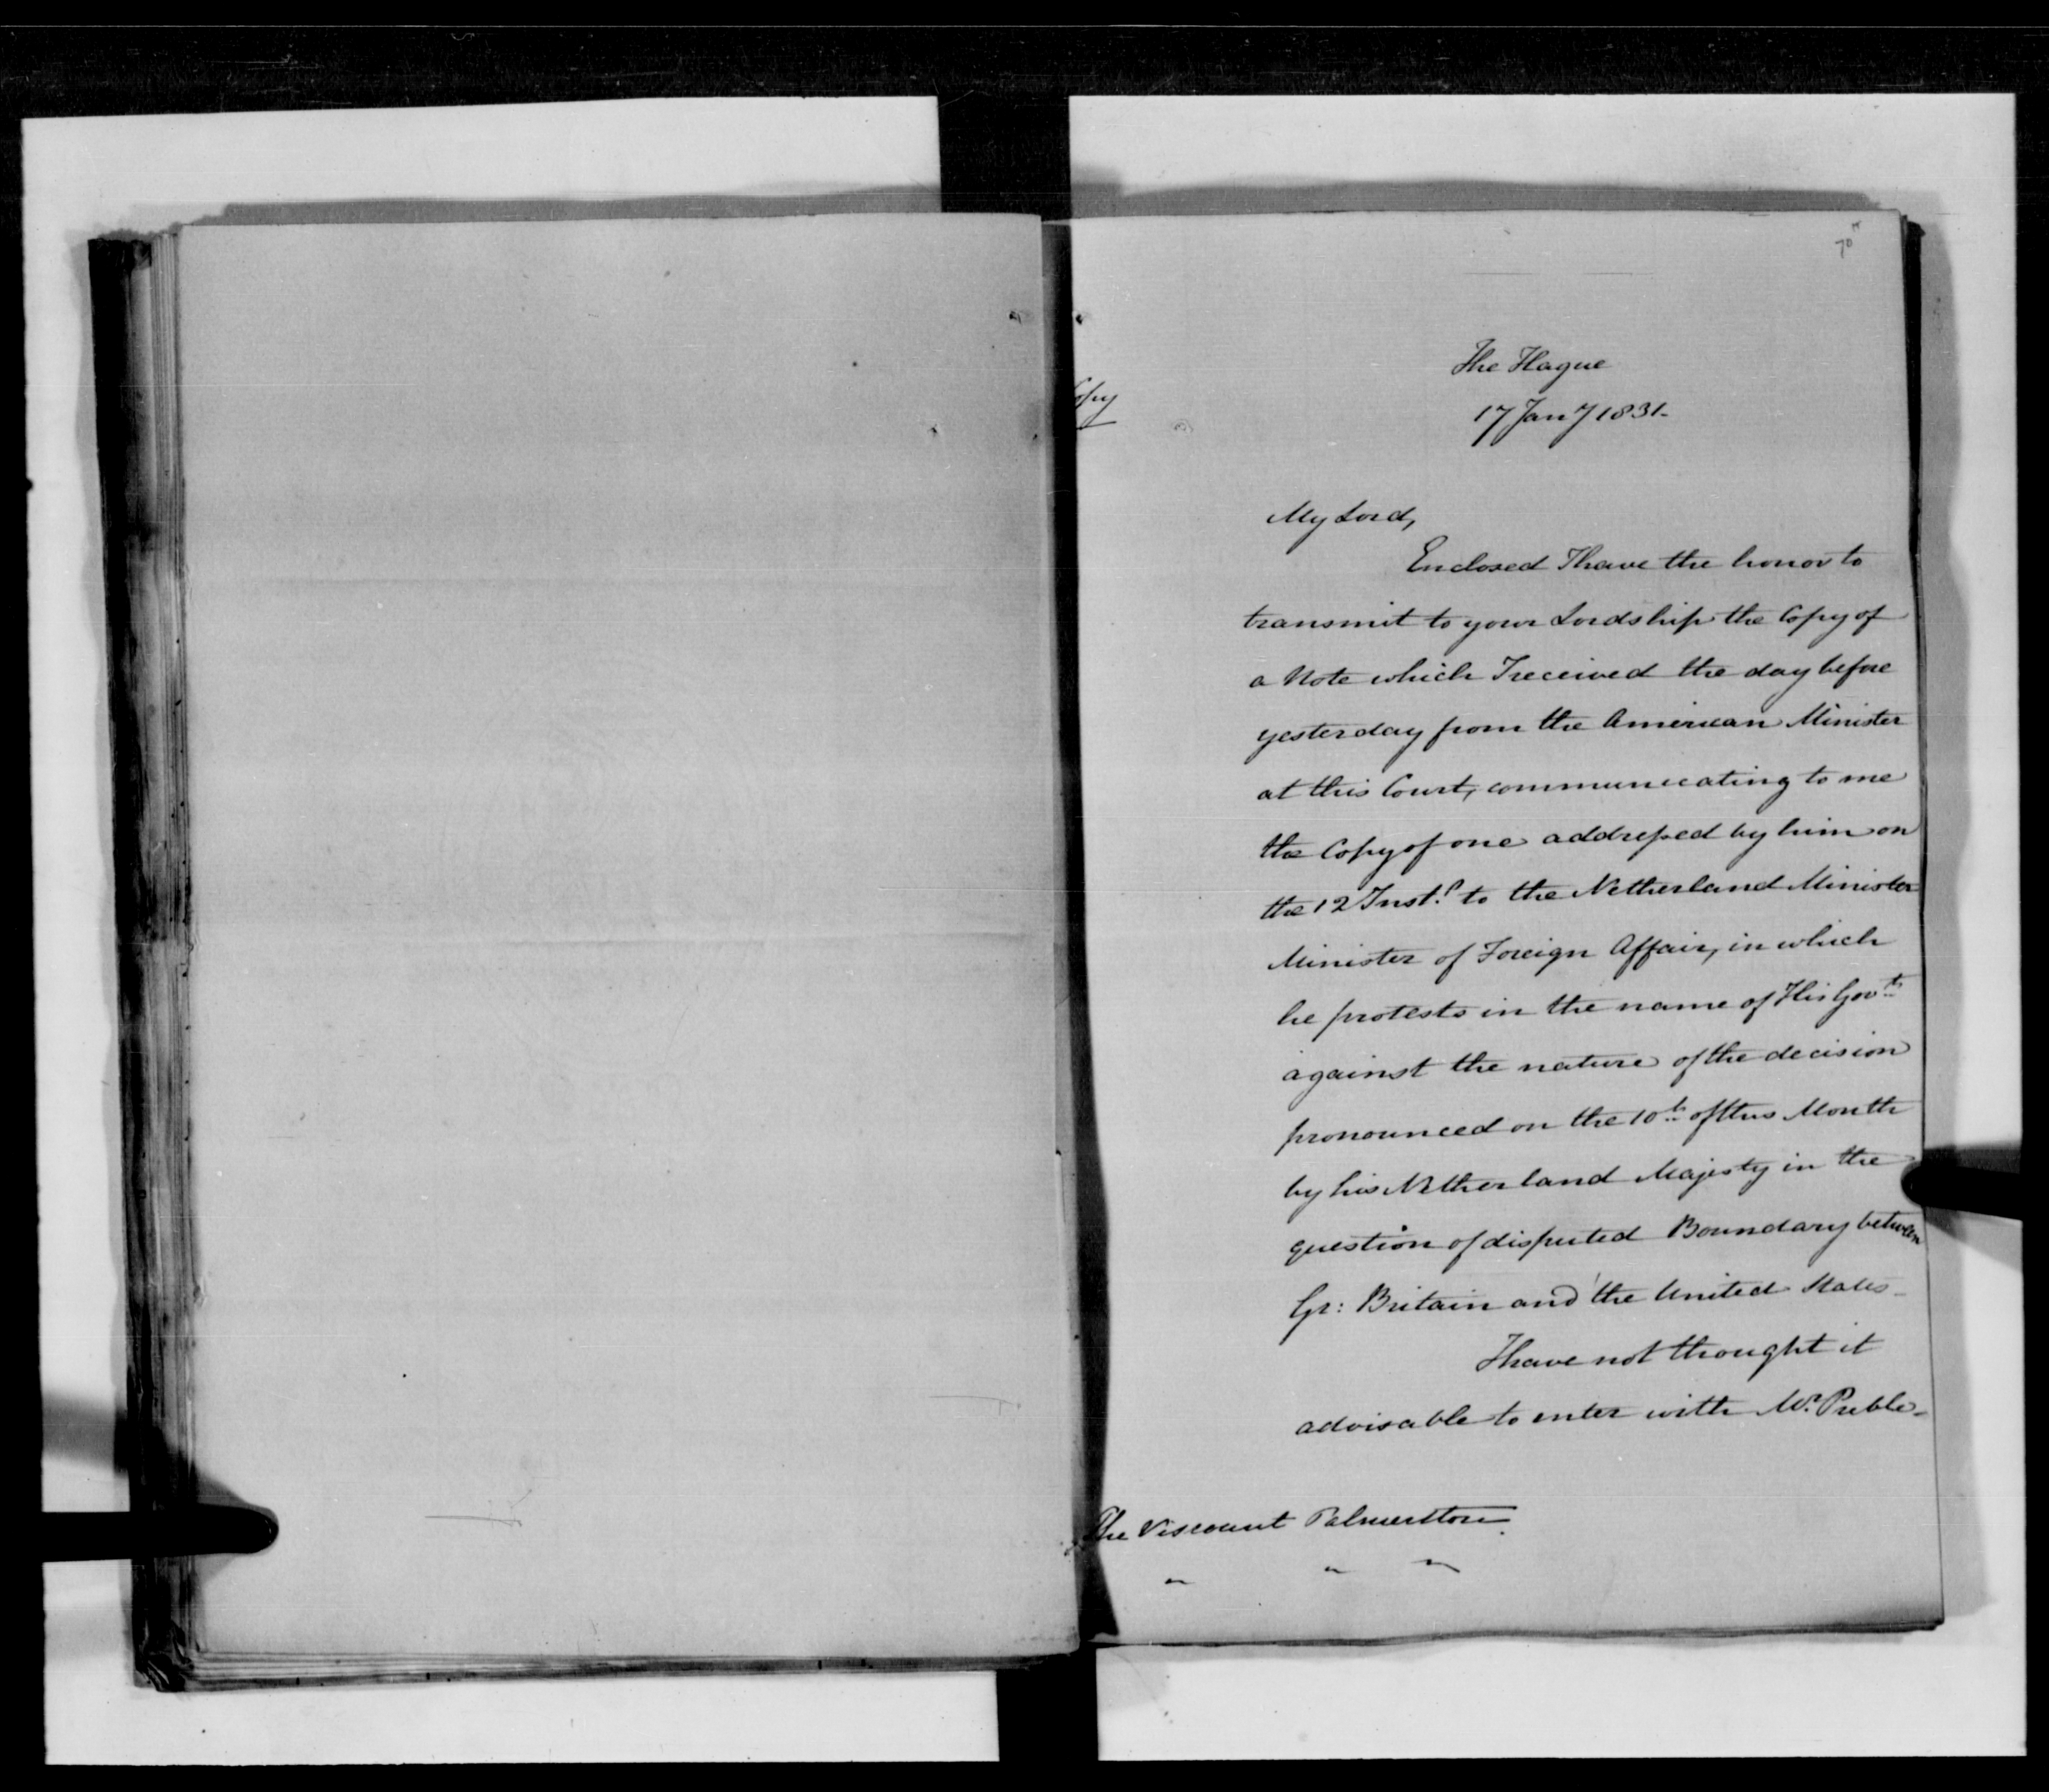 70
The Hague
17 Jany 1831.
Copy
My Lord,
Enclosed I have the honor to
transmit to your Lordship the Copy of
a Note which I received the day before
yesterday from the American Minister
at this Court, communicating to me
the Copy of one addressed by him on
the 12 Inst. to the Netherland Minister
Minister of Foreign Affair, in which
he protests in the name of His Govt
against the nature of the decision
pronounced on the 10th of this Month
by his Netherland Majesty in the
question of disputed Boundary between
Gr: Britain and the United States_
I have not thought it
advisable to enter with Mr. Preble_
The Viscount Palmerston.
" " "